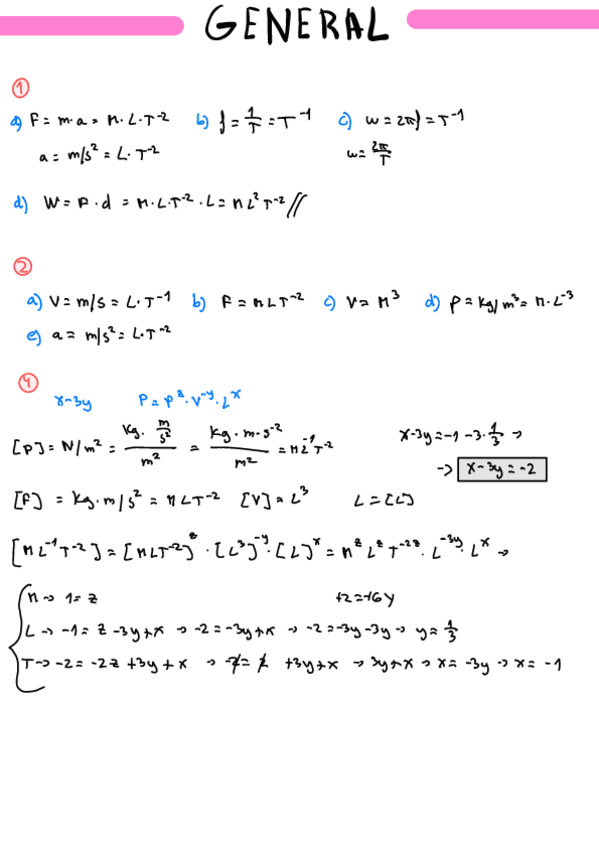 GENERAL
①
a) F = m·a = M·L·T⁻² b) f = 1/T = T⁻¹ c) w = 2πf = T⁻¹
a = m/s² = L·T⁻² w = 2π/T
d) W = F·d = M·L·T⁻²·L = M L² T⁻² //
②
a) V = m/s = L·T⁻¹ b) F = M L T⁻² c) V = M³ d) ρ = kg/m³ = M·L⁻³
e) a = m/s² = L·T⁻²
④
x-3y P = F^z·V^-y·L^x
[P] = N/m² = (Kg·m/s²)/m² = (Kg·m·s⁻²)/m² = M L⁻¹ T⁻² x-3y = -1-3·1/3 →
→ x-3y = -2
[F] = Kg·m/s² = M L T⁻² [V] = L³ L = [L]
[M L⁻¹ T⁻²] = [M L T⁻²]^z · [L³]^-y · [L]^x = M^z L^z T^-2z · L^-3y · L^x →
M → 1 = z +2=+6y
L → -1 = z -3y+x → -2 = -3y+x → -2 = -3y-3y → y = 1/3
T → -2 = -2z +3y+x → -2 = 2 +3y+x → 3y+x → x = -3y → x = -1